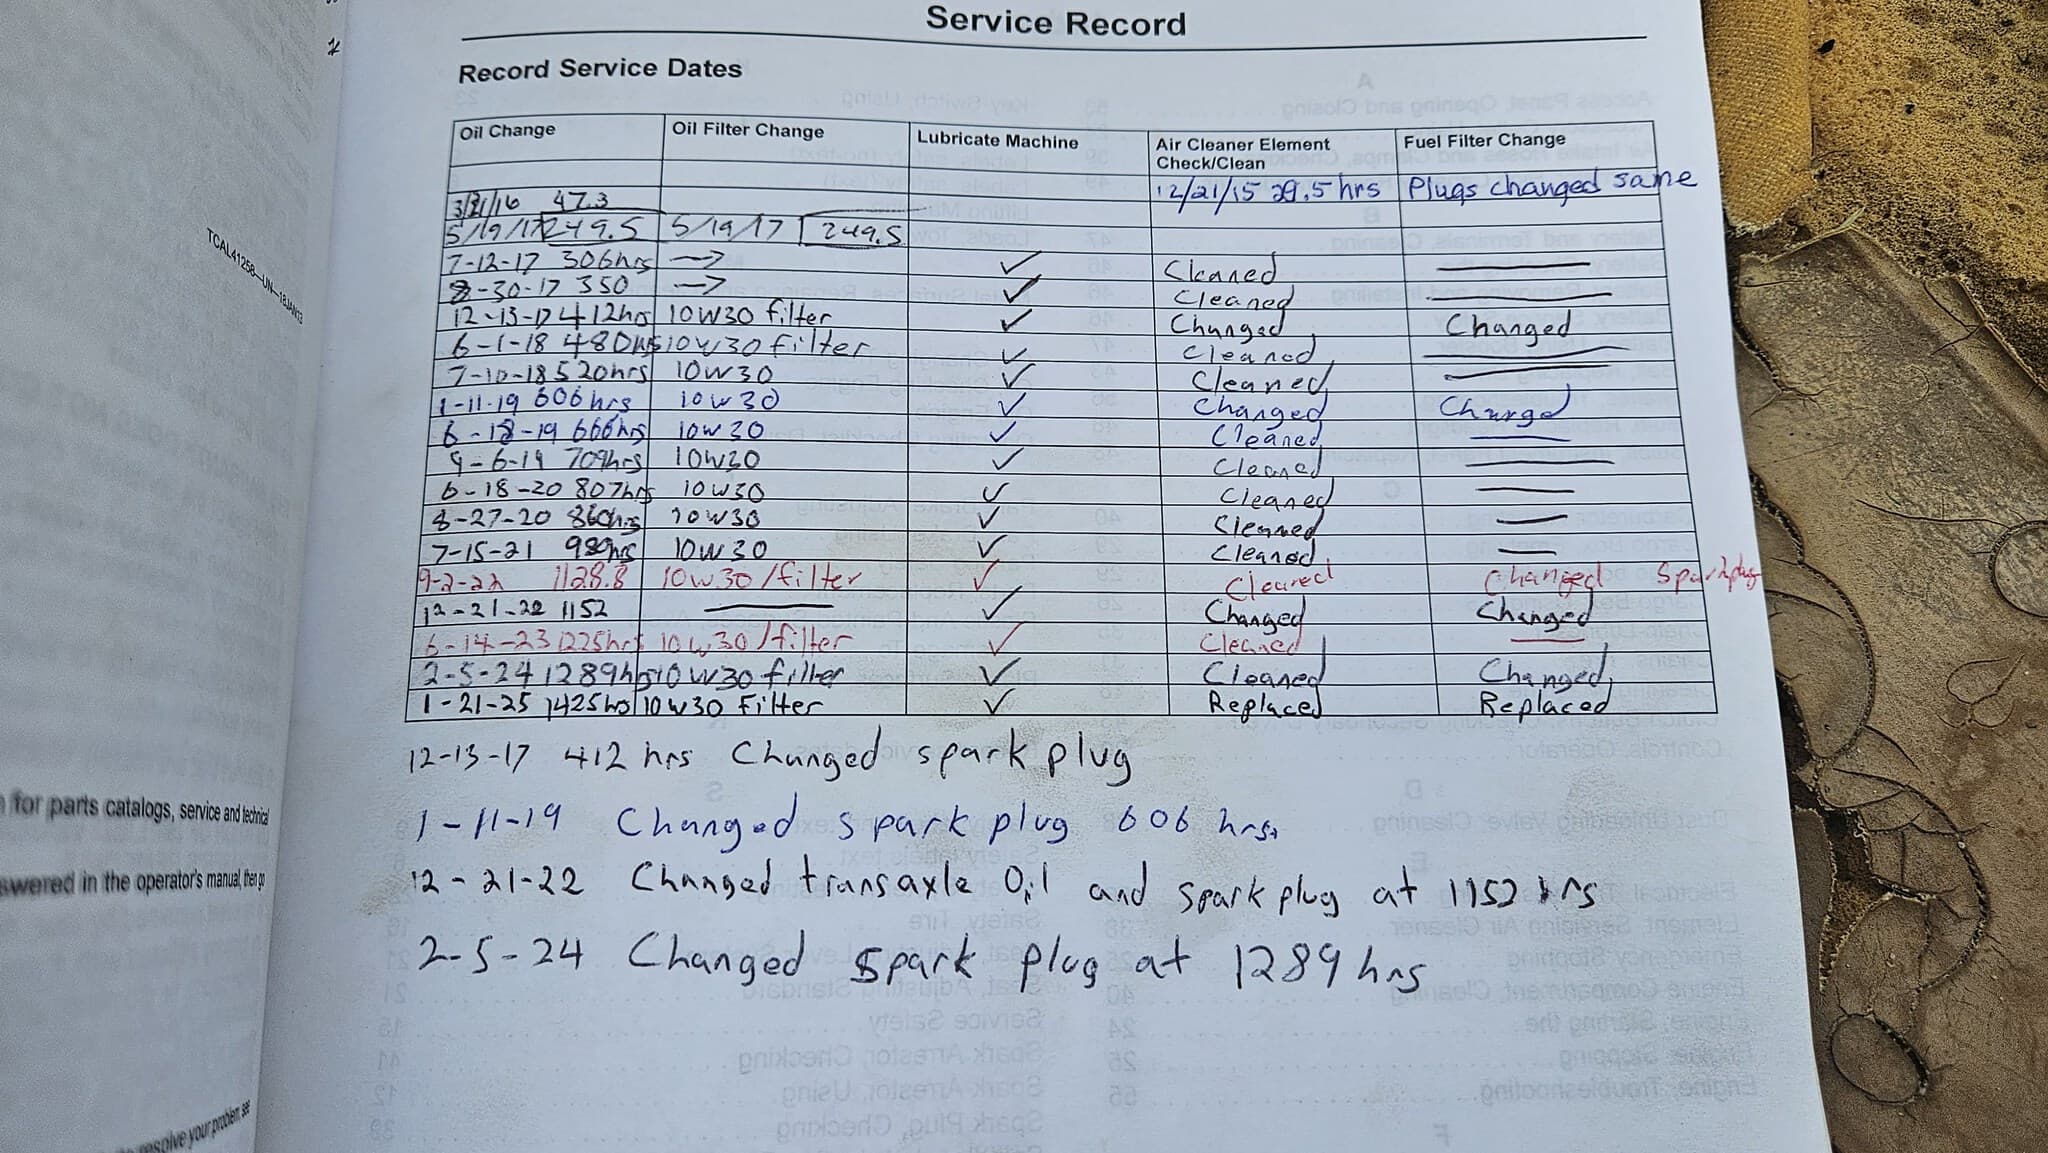 Service Record
Record Service Dates
Oil Change Oil Filter Change Lubricate Machine Air Cleaner Element Check/Clean Fuel Filter Change
12/21/15 29.5 hrs Plugs changed same
3/21/16 47.3
5/19/17 249.5 5/19/17 249.5
7-12-17 306hrs → ✓ Cleaned —
8-30-17 350 → ✓ Cleaned —
12-13-17 412hrs 10W30 filter ✓ Changed Changed
6-1-18 480hrs 10w30 filter ✓ Cleaned —
7-10-18 520hrs 10w30 ✓ Cleaned —
1-11-19 606 hrs 10w30 ✓ Changed Changed
6-18-19 666hrs 10w30 ✓ Cleaned —
9-6-19 709hrs 10W30 ✓ Cleaned —
6-18-20 807hrs 10w30 ✓ Cleaned —
8-27-20 860hrs 10w30 ✓ Cleaned —
7-15-21 989hrs 10W30 ✓ Cleaned —
9-2-22 1128.8 10w30/filter ✓ Cleaned Changed Sparkplug
12-21-22 1152 — ✓ Changed Changed
6-14-23 1225hrs 10w30/filter ✓ Cleaned —
2-5-24 1289hrs 10W30 filter ✓ Cleaned Changed
1-21-25 1425hrs 10w30 Filter ✓ Replaced Replaced
12-13-17 412 hrs Changed spark plug
1-11-19 Changed spark plug 606 hrs.
12-21-22 Changed transaxle Oil and spark plug at 1152 hrs
2-5-24 Changed spark plug at 1289 hrs
TCAL41258—UN—18JAN13
for parts catalogs, service and technical
swered in the operator's manual, then go
resolve your problem, see